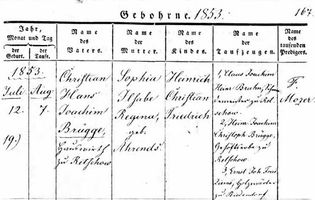 Gebohrne. 1853.
167.
Jahr, Monat und Tag
der Geburt. der Taufe.
Name des Vaters.
Name der Mutter.
Name des Kindes.
Name der Taufzeugen.
Name des taufenden Predigers.
1853.
Juli Aug.
12. 7.
19.)
Christian
Hans
Joachim
Brügge,
zu Retschow
Sophia
Ilsabe
Regina,
geb.
Ahrends
Heinrich
Christian
Friedrich
1, Hans Joachim
Heinr Bruhn,
zu Ret
schow
2, Heinr Joachim
Christoph Brügge,
zu Retschow
3, Ernst Joh
zu
F.
Mozer